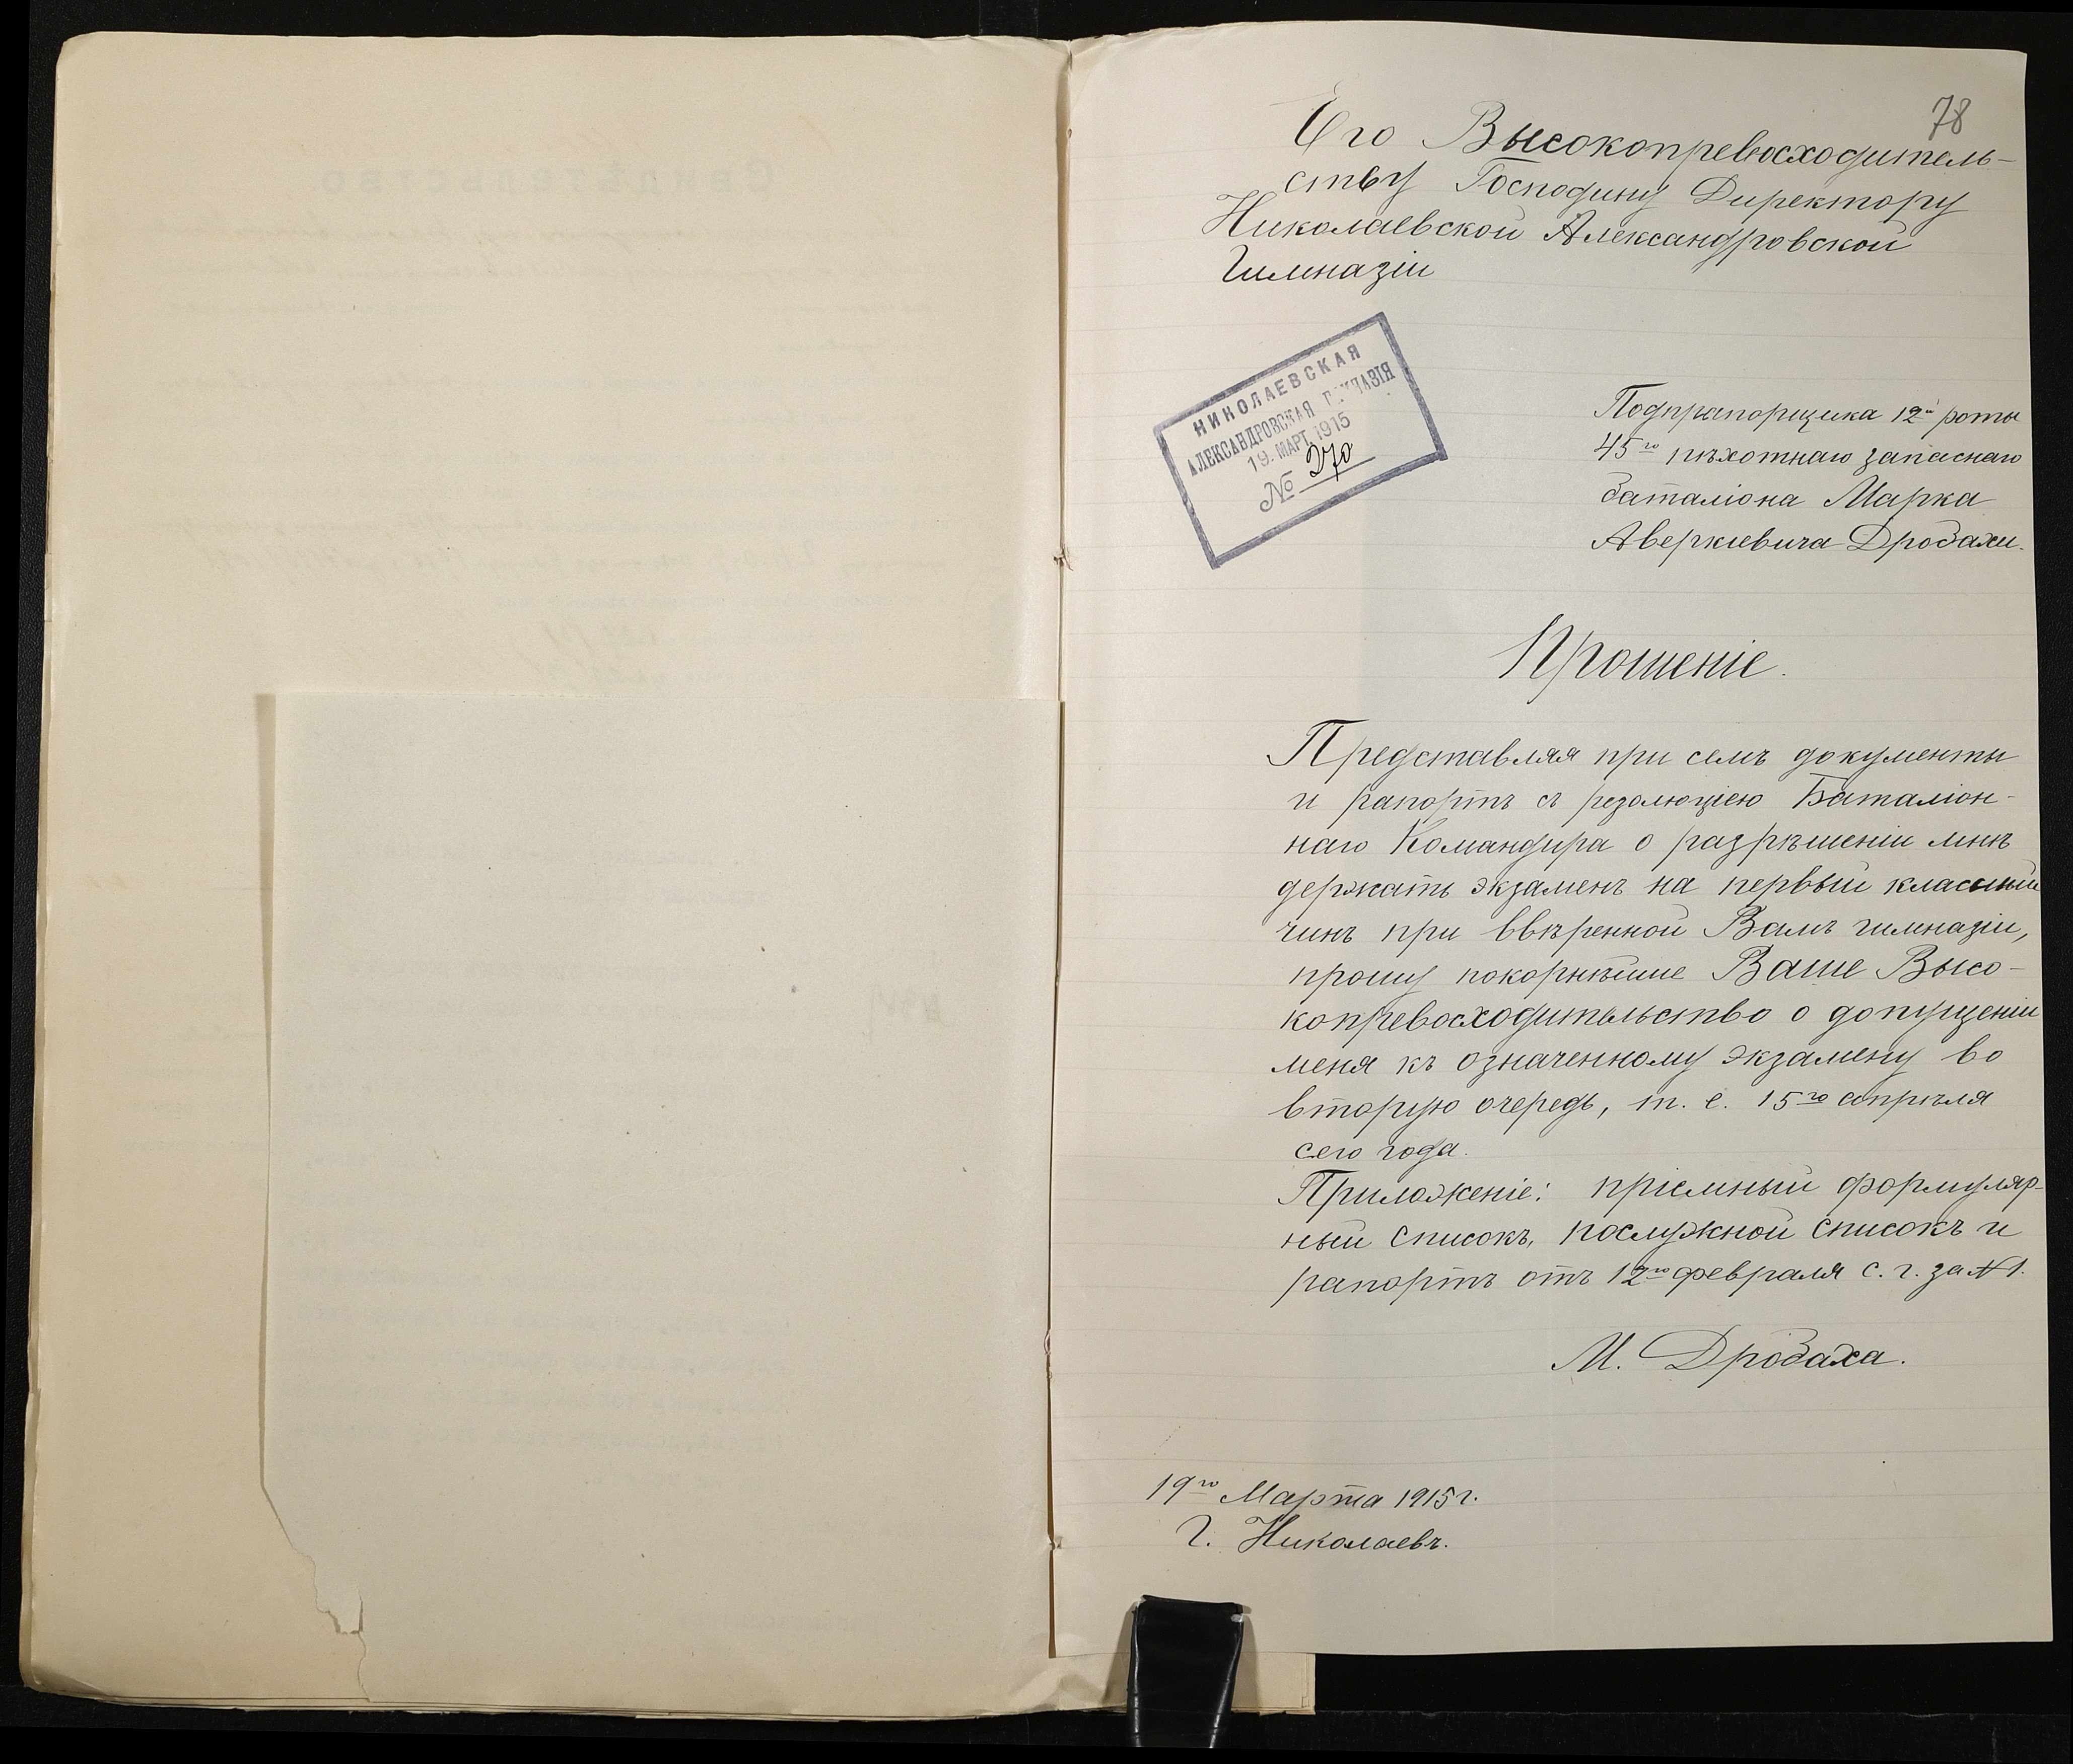 78
Его Высокопревосходитель-
ству Господину Директору
Николаевской Александровской
Гимназіи
НИКОЛАЕВСКАЯ
АЛЕКСАНДРОВСКАЯ ГИМНАЗІЯ
19. МАРТ. 1915
№ 270
Подпрапорщика 12й роты
45го пѣхотнаго запаснаго
баталіона Марка
Аверкіевича Дробахи.
Прошеніе.
Представляя при семъ документы
и рапортъ съ резолюціею Баталіон-
наго Командира о разрѣшеніи мнѣ
держать экзаменъ на первый классный
чинъ при ввѣренной Вамъ гимназіи,
прошу покорнѣйше Ваше Высо-
копревосходительство о допущеніи
меня къ означенному экзамену во
вторую очередь, т. е. 15го апрѣля
сего года.
Приложеніе: пріемный формуляр-
ный списокъ, послужной списокъ и
рапортъ отъ 12го февраля с. г. за №1.
М. Дробаха.
19го Марта 1915 г.
Г. Николаевъ.